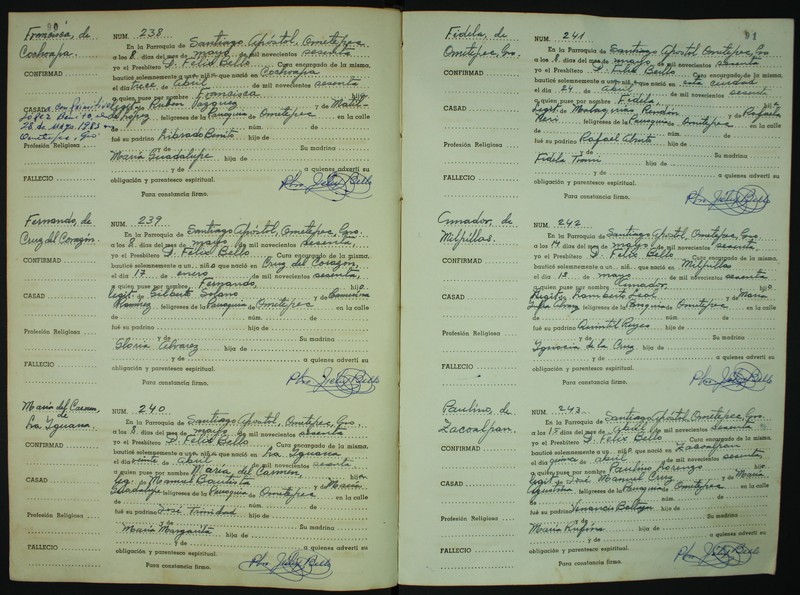 Francisca, de
Cochoapa.
CONFIRMAD
CASAD
López
28 de Mayo 1983
Ometepec, Gro
Profesión Religiosa
FALLECIO
NUM. 238
En la Parroquia de Santiago Apóstol, Ometepec
a los 8 días del mes de mayo de mil novecientos sesenta
yo el Presbítero D. Félix Bello Cura encargado de la misma,
bauticé solemnemente a un niñ que nació en Cochoapa
el día trece de Abril de mil novecientos sesenta
a quien puse por nombre Francisca hij
Vázquez y de
López feligreses de la Parroquia de Ometepec en la calle
de núm. de
fué su padrino Librado Benito hijo de
y de Su madrina
María Guadalupe hija de
y de a quienes advertí su
obligación y parentesco espiritual.
Para constancia firmo.
Pbro. Félix Bello
Fernando, de
Cruz del Corazón.
CONFIRMAD
CASAD
Profesión Religiosa
FALLECIO
NUM. 239
En la Parroquia de Santiago Apóstol, Ometepec, Gro.
a los 8 días del mes de mayo de mil novecientos sesenta,
yo el Presbítero D. Félix Bello Cura encargado de la misma,
bauticé solemnemente a un niñ que nació en Cruz del Corazón,
el día 17 de enero de mil novecientos sesenta,
a quien puse por nombre Fernando, hij
legít. de Gilberto Solano y de
Ramírez feligreses de la Parroquia de Ometepec en la calle
de núm. de
fué su padrino hijo de
y de Su madrina
Gloria Alvarez hija de
y de a quienes advertí su
obligación y parentesco espiritual.
Para constancia firmo.
Pbro. Félix Bello
María del Carmen,
de
La Iguana.
CONFIRMAD
CASAD
Profesión Religiosa
FALLECIO
NUM. 240
En la Parroquia de Santiago Apóstol, Ometepec, Gro.
a los 8 días del mes de mayo de mil novecientos sesenta
yo el Presbítero D. Félix Bello Cura encargado de la misma,
bauticé solemnemente a un niñ que nació en La Iguana
el día de abril de mil novecientos sesenta
a quien puse por nombre María del Carmen, hij
leg. de Manuel Bautista y de María
Guadalupe feligreses de la Parroquia de Ometepec en la calle
de núm. de
fué su padrino José Trinidad hijo de
y de Su madrina
María Margarita hija de
y de a quienes advertí su
obligación y parentesco espiritual.
Para constancia firmo.
Pbro. Félix Bello
91
Fidela, de
Ometepec, Gro.
CONFIRMAD
CASAD
Profesión Religiosa
FALLECIO
NUM. 241
En la Parroquia de Santiago Apóstol Ometepec, Gro
a los 8 días del mes de mayo de mil novecientos sesenta
yo el Presbítero D. Félix Bello Cura encargado de la misma,
bauticé solemnemente a un niñ que nació en esta ciudad
el día 24 de abril de mil novecientos sesenta
a quien puse por nombre Fidela hij
legít. de Rendón y de Rafaela
Neri feligreses de la Parroquia de Ometepec en la calle
de núm. de
fué su padrino Rafael hijo de
y de Su madrina
Fidela hija de
y de a quienes advertí su
obligación y parentesco espiritual.
Para constancia firmo.
Pbro. Félix Bello
Amador, de
Milpillas.
CONFIRMAD
CASAD
Profesión Religiosa
FALLECIO
NUM. 242
En la Parroquia de Santiago Apóstol, Ometepec, Gro.
a los 14 días del mes de mayo de mil novecientos sesenta.
yo el Presbítero D. Félix Bello Cura encargado de la misma,
bauticé solemnemente a un niñ que nació en Milpillas
el día 12 de mayo de mil novecientos sesenta
a quien puse por nombre Amador. hij
legít. de Lamberto Leal y de María
feligreses de la Parroquia de Ometepec en la calle
de núm. de
fué su padrino Quintil Reyes hijo de
y de Su madrina
Ignacia de la Cruz hija de
y de a quienes advertí su
obligación y parentesco espiritual.
Para constancia firmo.
Pbro. Félix Bello
Paulino, de
Zacoalpan.
CONFIRMAD
CASAD
Profesión Religiosa
FALLECIO
NUM. 243
En la Parroquia de Santiago Apóstol, Ometepec, Gro.
a los 15 días del mes de de mil novecientos sesenta
yo el Presbítero D. Félix Bello Cura encargado de la misma,
bauticé solemnemente a un niñ que nació en Zacoalpan
el día quince de abril de mil novecientos sesenta
a quien puse por nombre Paulino Lorenzo hij
legít. de José Manuel Cruz y de María
Agustina feligreses de la Parroquia de Ometepec en la calle
de núm. de
fué su padrino Venancio Baltazar hijo de
y de Su madrina
María Rufina hija de
y de a quienes advertí su
obligación y parentesco espiritual.
Para constancia firmo.
Pbro. Félix Bello